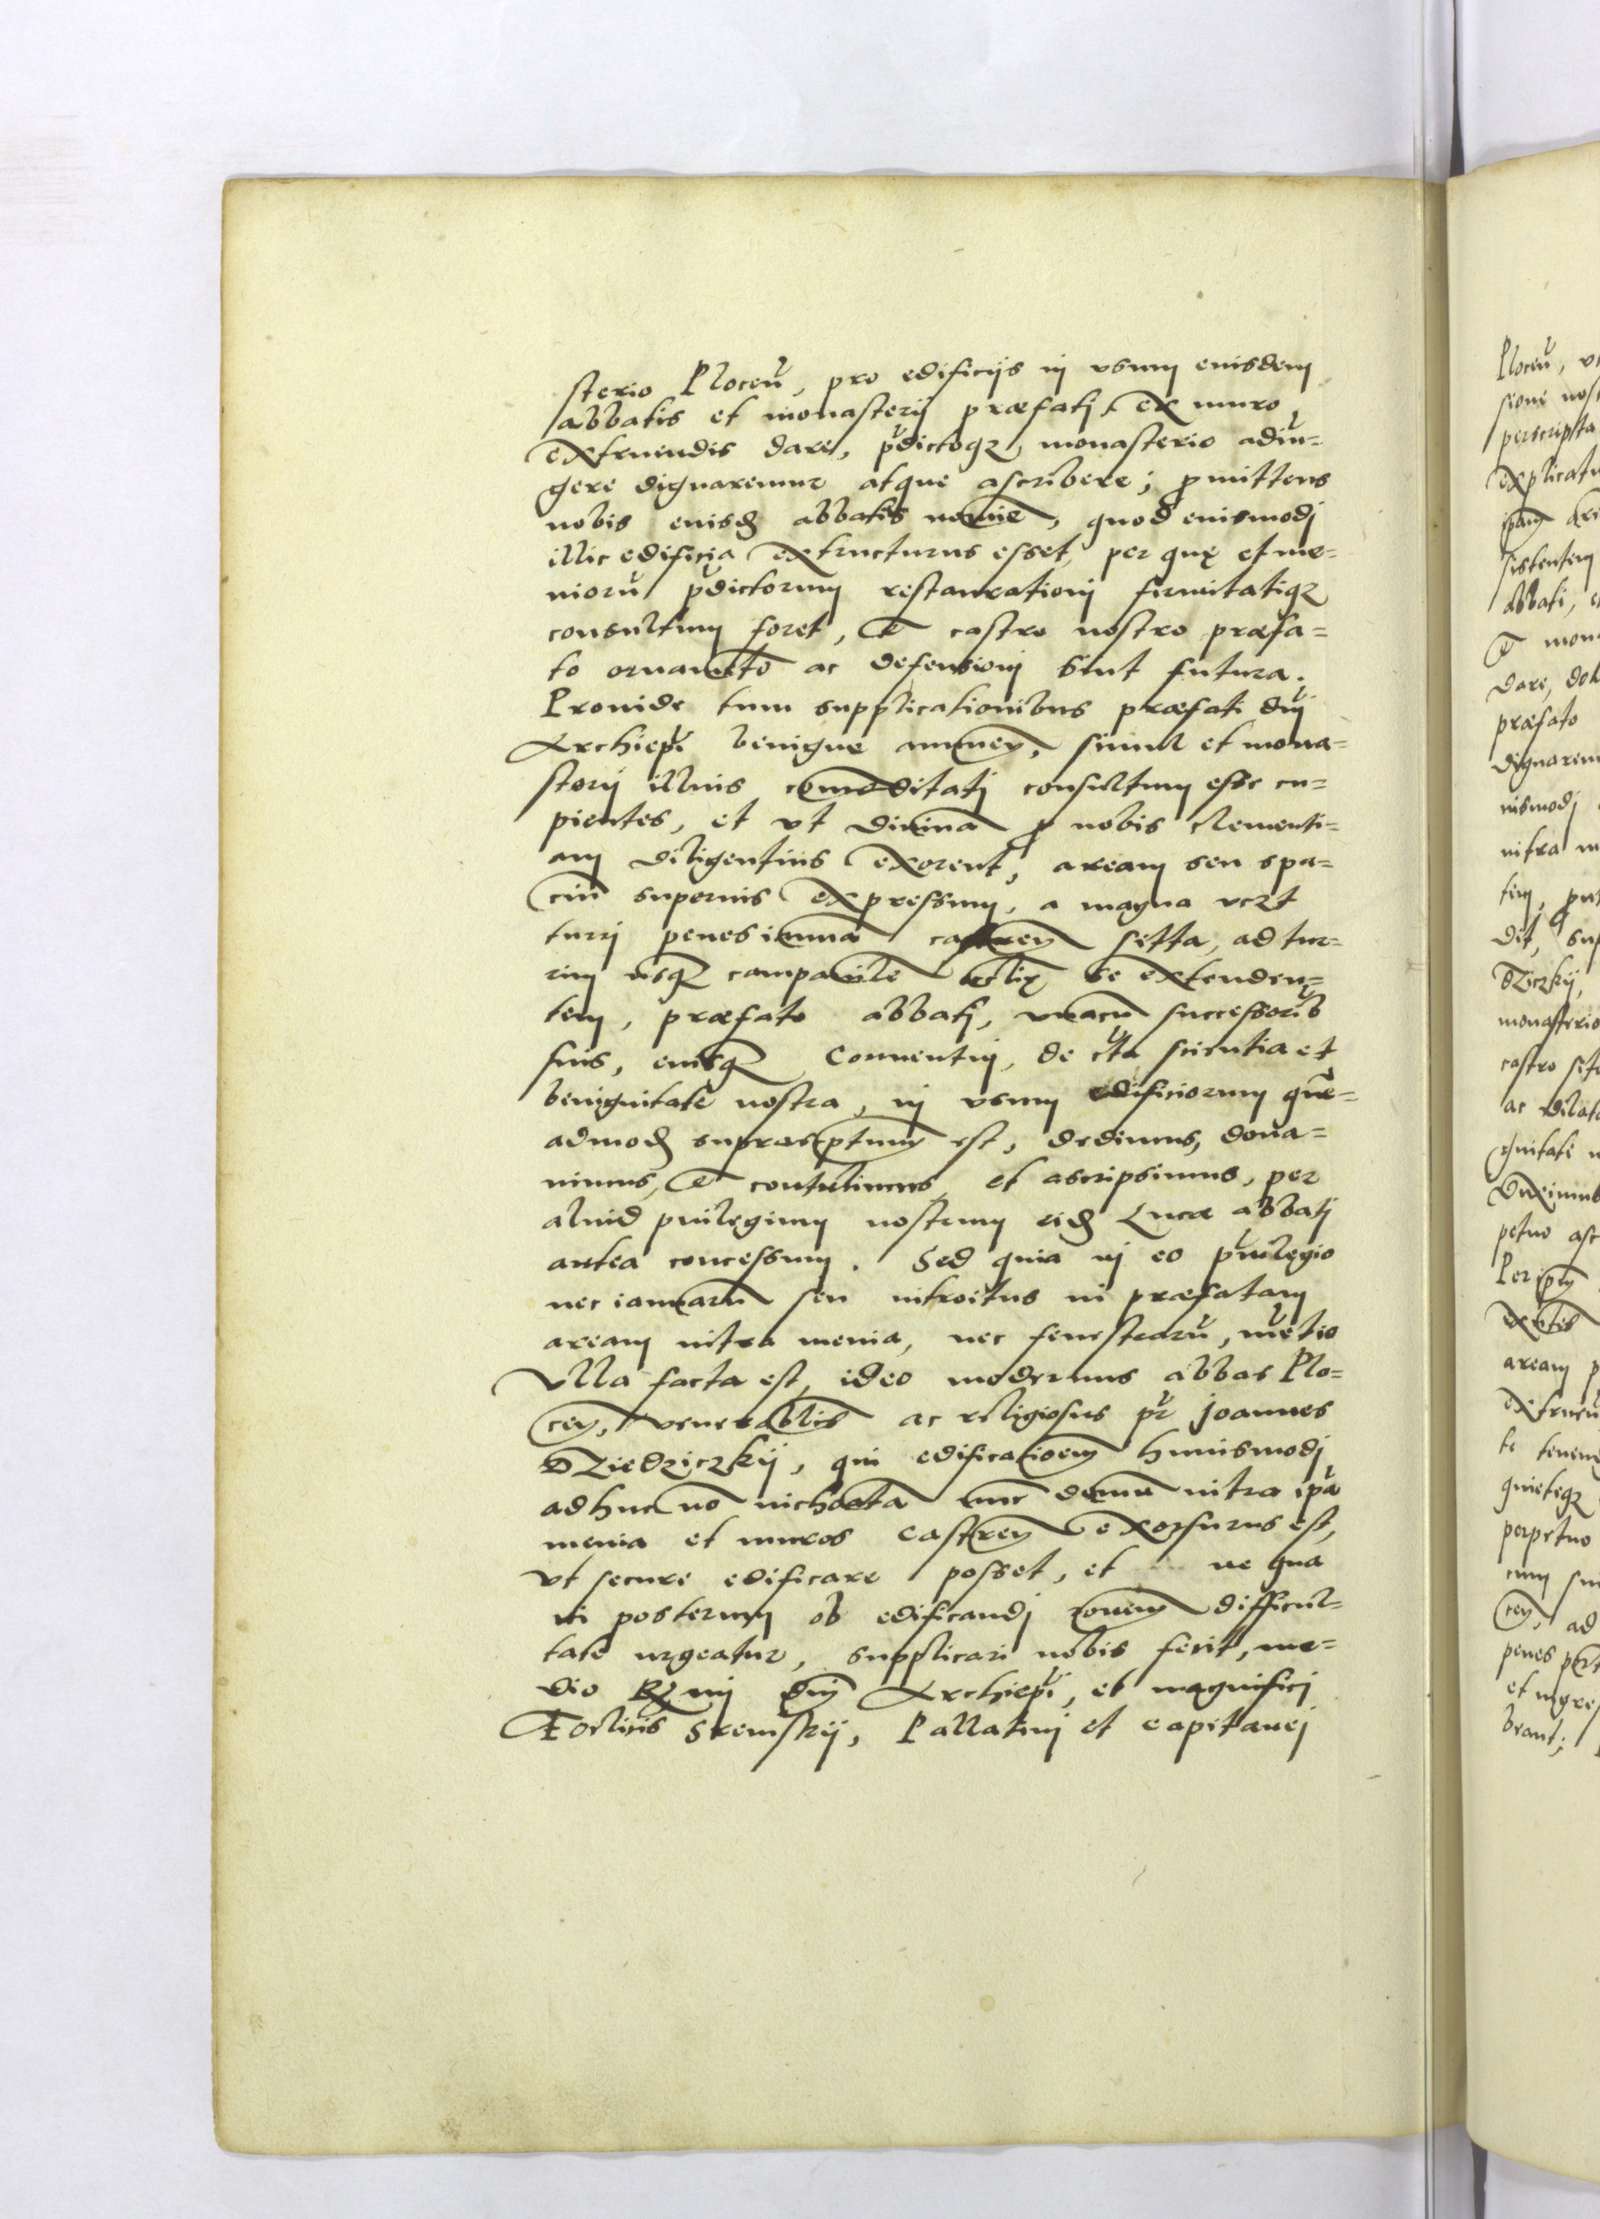 sterio Ploceñ, pro edificijs in vsum euisdem
abbatis et monasterij præfatj, ex muro
extruendis dare, p̃dictoqȝ monasterio adiũ-
gere dignaremur atque ascribere; ꝑmittens
nobis euisđ abbatis nomīe, quod euismodj
illic edificia extructurus esset, per quę et me-
niorũ p̃dictorum restaurationj firmitatiqȝ
consultum foret, & castro nostro præfa-
to ornamēto ac defensionj sint futura.
Prouide tum supplicationibus præfati dñj
Archiep̃i benigne annuen̄, simul et mona-
sterij illius com̄oditatj consultum esse cu-
pientes, et vt diuinā ꝓ nobis clementi-
am diligentius exorent, aream seu spa-
cium̄ superius expressum, a magna vczt
turrj penes ianuā castren̄ sitta, ad tur-
rim usqȝ campanile ecclię se extenden-
tem, præfato abbatj, vnacũ successorib
suis, euisqȝ Conuentuj, de c̃ta scientia et
benignitate nostra, in vsum edificiorum quē-
admođ suprascriptum est, dedimus, dona-
uimus, & contulimus et ascripsimus, per
aliud puilegium nostrum eiđ Lucæ abbatj
antea concessum. Sed quia in eo p̃uilegio
nec ianuarū seu introitus in præfatam
aream intra menia, nec fenestrarũ, mētio
vlla facta est, ideo modernus abbas Plo-
cen̄, venerabilis ac religiosus p̃r Joannes
Dziedziczkij, qui edificatioēm huiusmodj
adhuc nō inchoatā nunc demū intra ip̃a
menia et muros castren̄ exorsurus est,
vt secure edificare posset, et ne qua
in posterum ob edificandj rōnem difficul-
tate urgeatur, supplicari nobis fecit, me-
dio Rz̄mj dn̄j Archiep̃i, et magnificj
Foelicis Sremskij, Pallatinj et capitanej